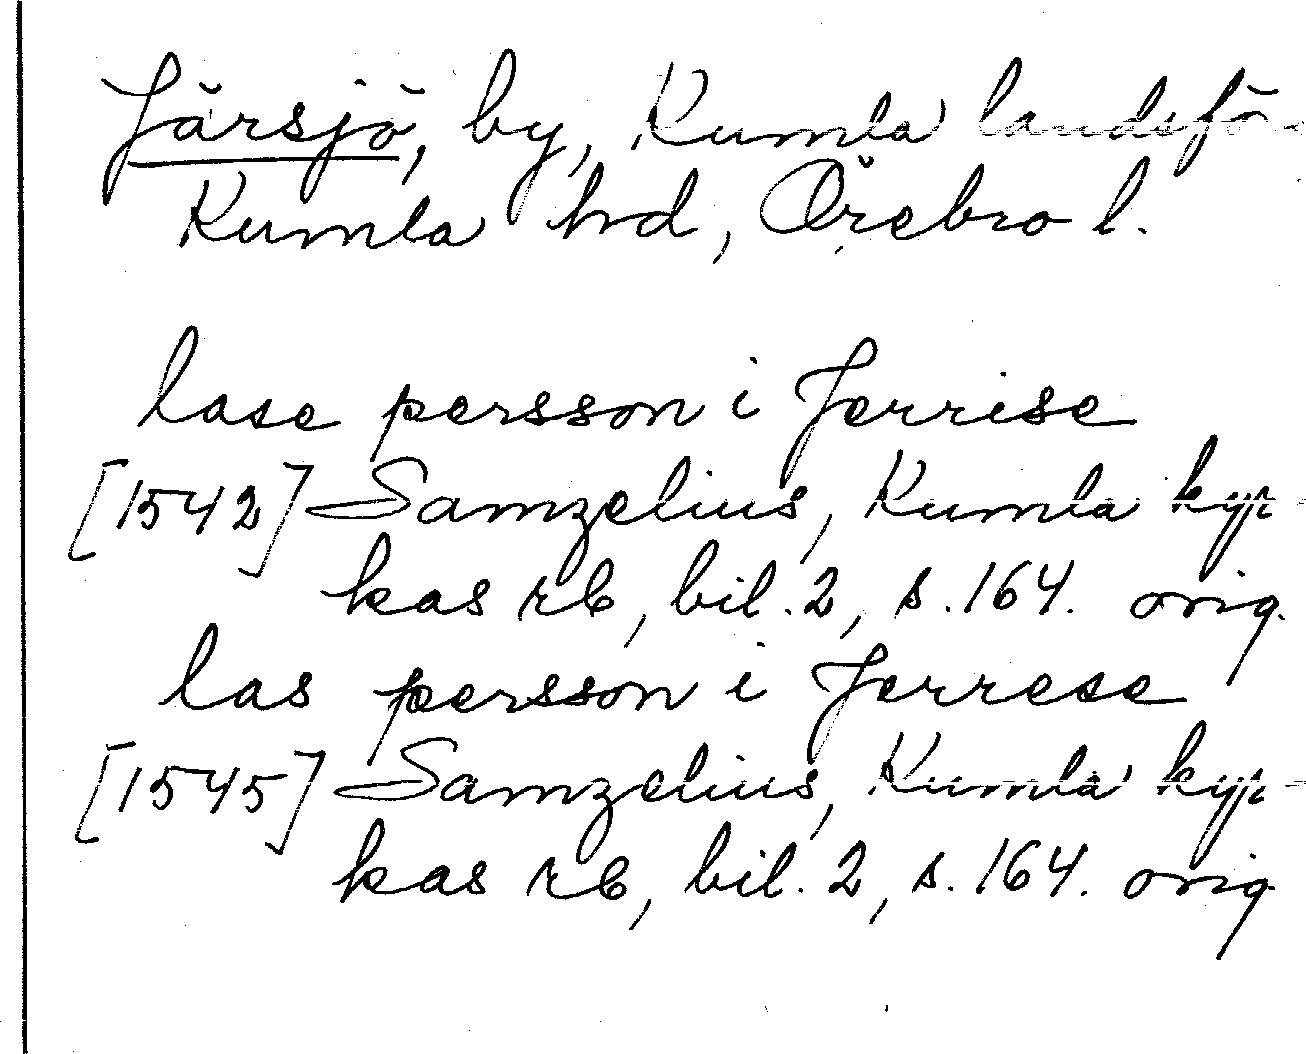 Järsjö, by, Kumla landsfö-
Kumla hd, Örebro l.
lase persson i Jerrise
[1542] Samzelius, Kumla kyr-
kas rb, bil. 2, s. 164. orig.
las persson i Jerrese
[1545] Samzelius, Kumla kyr-
kas rb, bil. 2, s. 164. orig